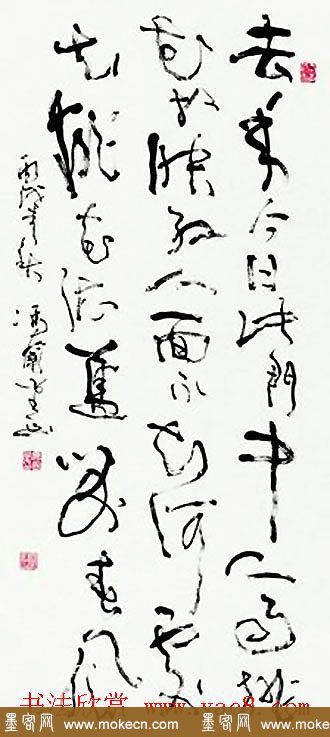 去年今日此門中人面桃
花相映紅人面不知何處
去桃花依舊笑春風
书法欣赏 www.yac8.com
墨客网 www.mokecn.com 墨客网 www.mokecn.com